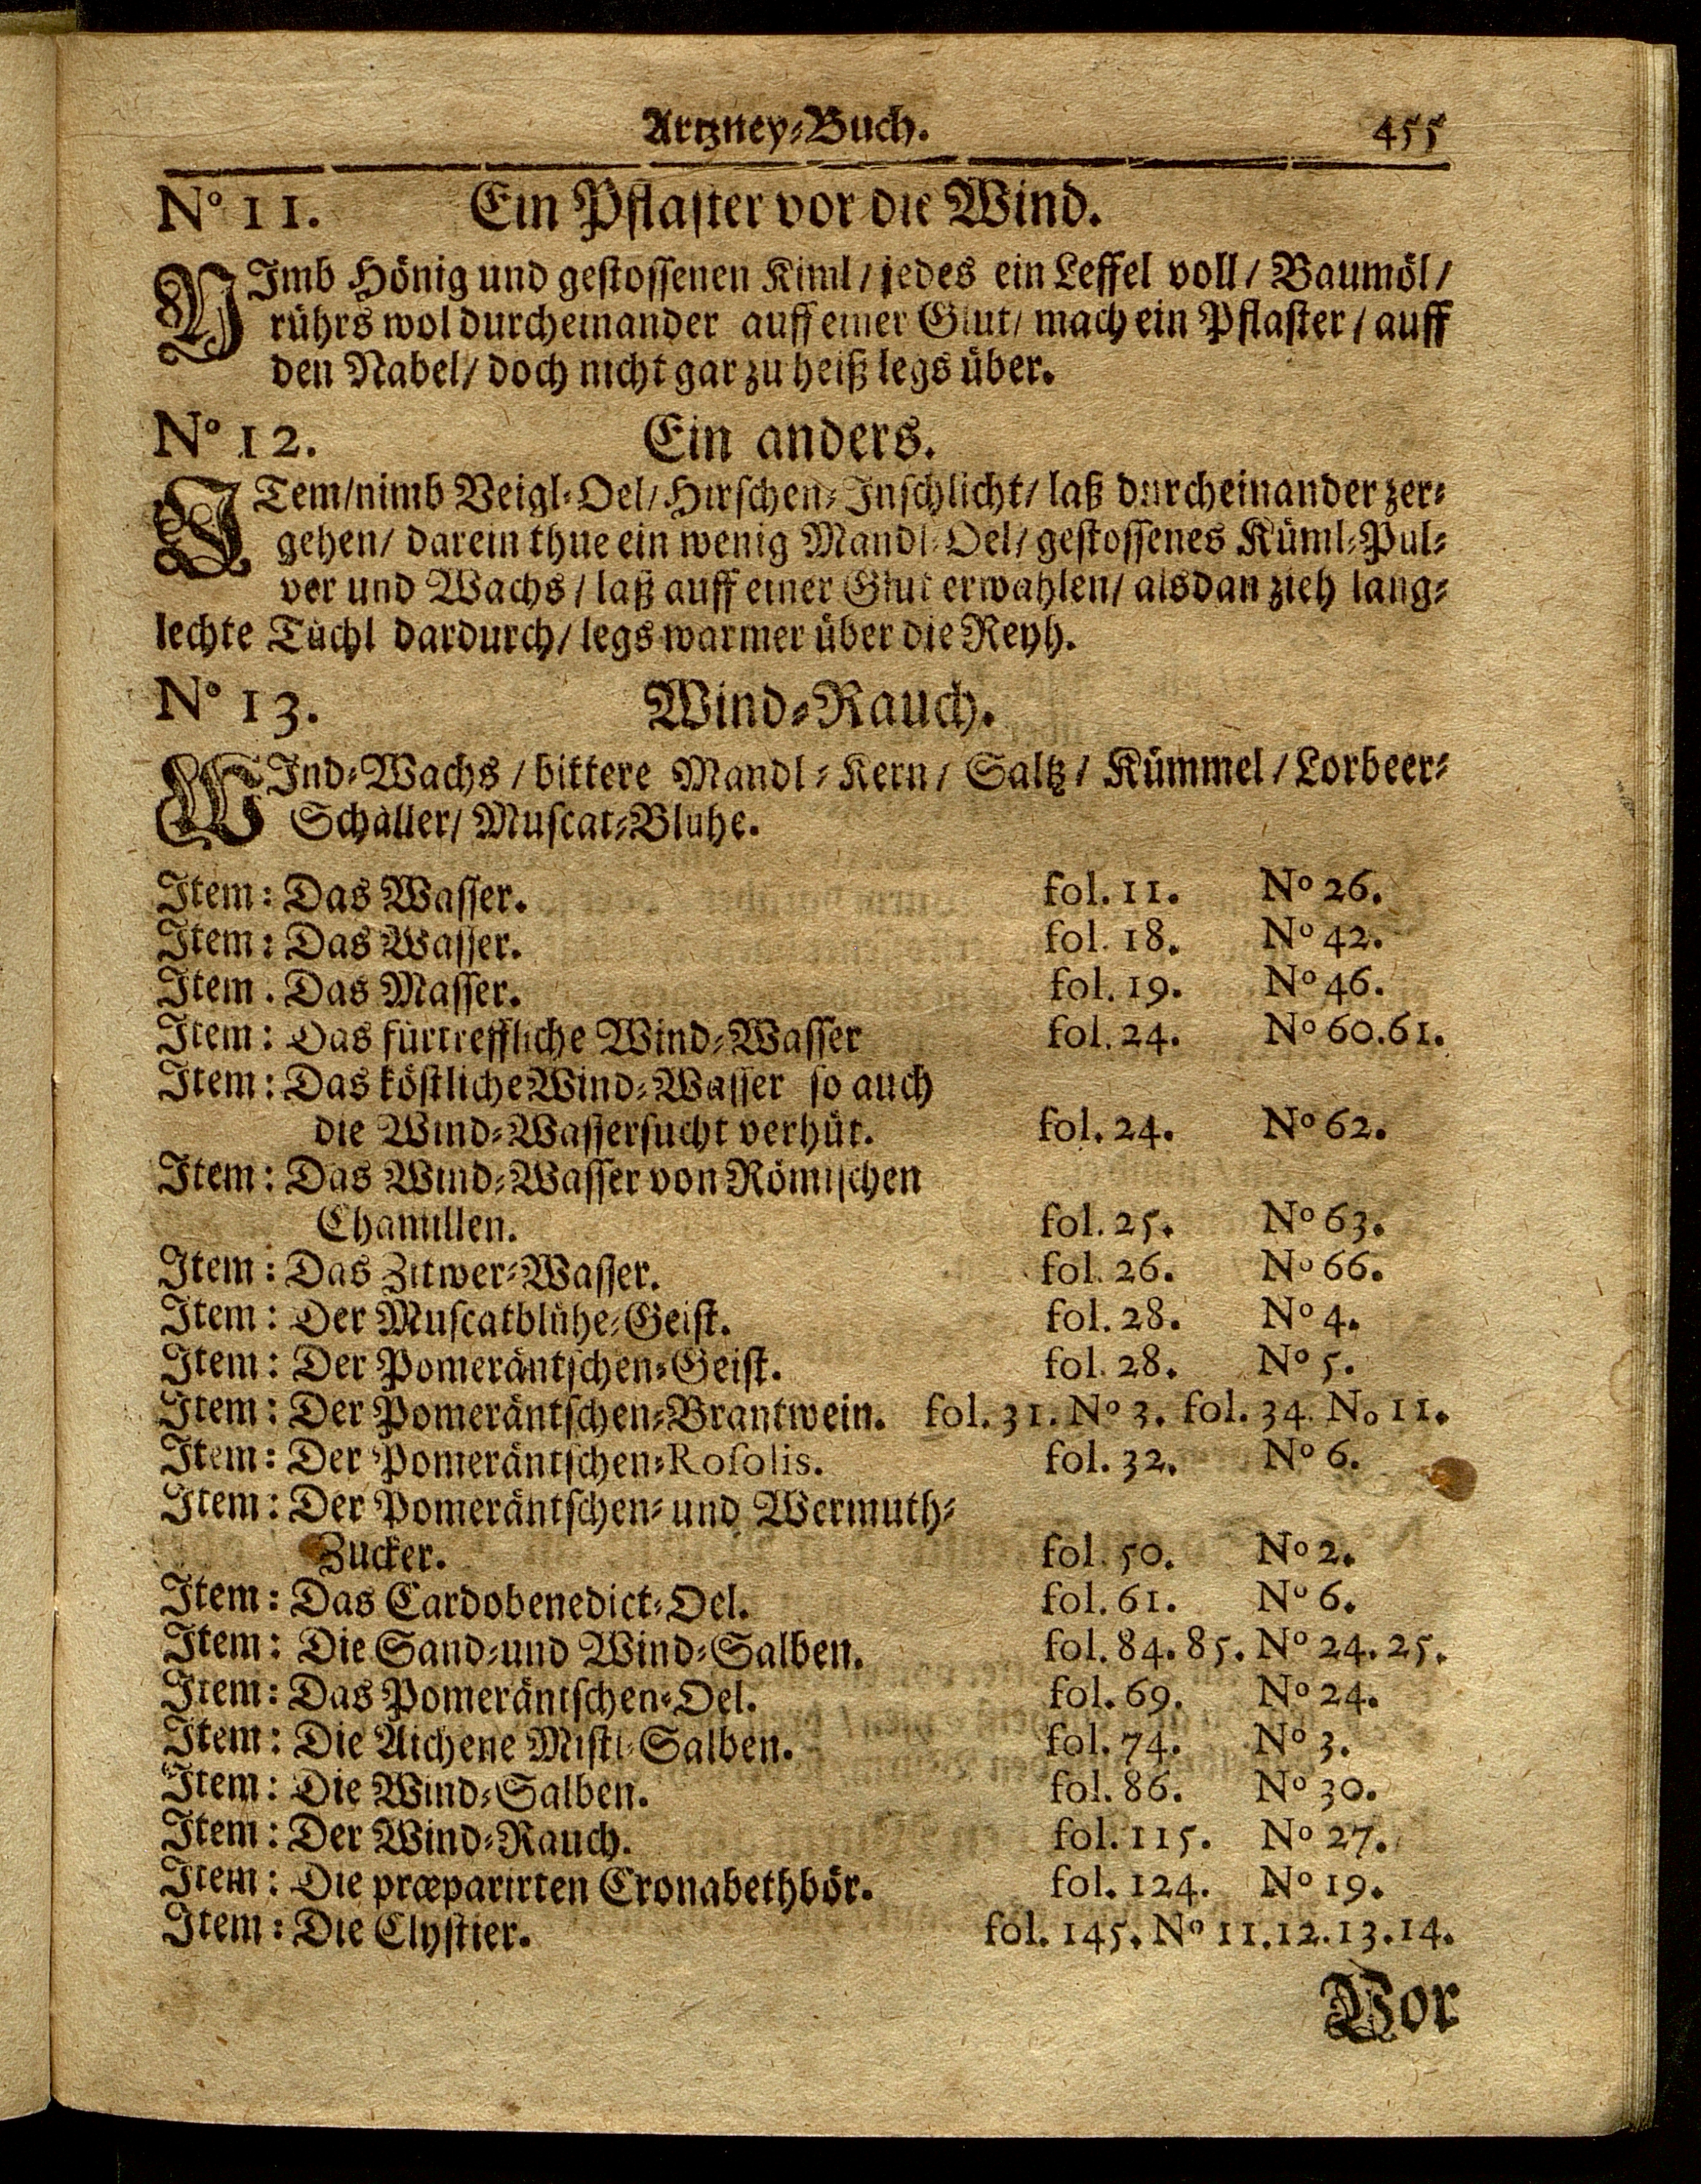 Artzney-Buch. 455
No 11. Ein Pflaster vor die Wind.
NImb Hönig und gestossenen Kiml / jedes ein Leffel voll / Baumöl /
rührs wol durcheinander auff einer Glut / mach ein Pflaster / auff
den Nabel / doch nicht gar zu heiß legs über.
No 12. Ein anders.
ITem / nimb Veigl-Oel / Hirschen-Inschlicht / laß durcheinander zer-
gehen / darein thue ein wenig Mandl-Oel / gestossenes Küml-Pul-
ver und Wachs / laß auff einer Glut erwahlen / alsdan zieh lang-
lechte Tüchl dardurch / legs warmer über die Reyh.
No 13. Wind-Rauch.
WInd-Wachs / bittere Mandl-Kern / Saltz / Kümmel / Lorbeer-
Schäller / Muscat-Bluhe.
Item: Das Wasser. fol. 11. No 26.
Item: Das Wasser. fol. 18. No 42.
Item. Das Masser. fol. 19. No 46.
Item: Das fürtreffliche Wind-Wasser fol. 24. No 60.61.
Item: Das köstliche Wind-Wasser so auch
die Wind-Wassersucht verhüt. fol. 24. No 62.
Item: Das Wind-Wasser von Römischen
Chamillen. fol. 25. No 63.
Item: Das Zitwer-Wasser. fol. 26. No 66.
Item: Der Muscatblühe-Geist. fol. 28. No 4.
Item: Der Pomeräntschen-Geist. fol. 28. No 5.
Item: Der Pomeräntschen-Brantwein. fol. 31. No 3. fol. 34. No 11.
Item: Der Pomeräntschen-Rosolis. fol. 32. No 6.
Item: Der Pomeräntschen- und Wermuth-
Zucker. fol. 50. No 2.
Item: Das Cardobenedict-Oel. fol. 61. No 6.
Item: Die Sand- und Wind-Salben. fol. 84. 85. No 24. 25.
Item: Das Pomeräntschen-Oel. fol. 69. No 24.
Item: Die Aichene Mistl-Salben. fol. 74. No 3.
Item: Die Wind-Salben. fol. 86. No 30.
Item: Der Wind-Rauch. fol. 115. No 27.
Item: Die præparirten Cronabethbör. fol. 124. No 19.
Item: Die Clystier. fol. 145. No 11.12.13.14.
Vor